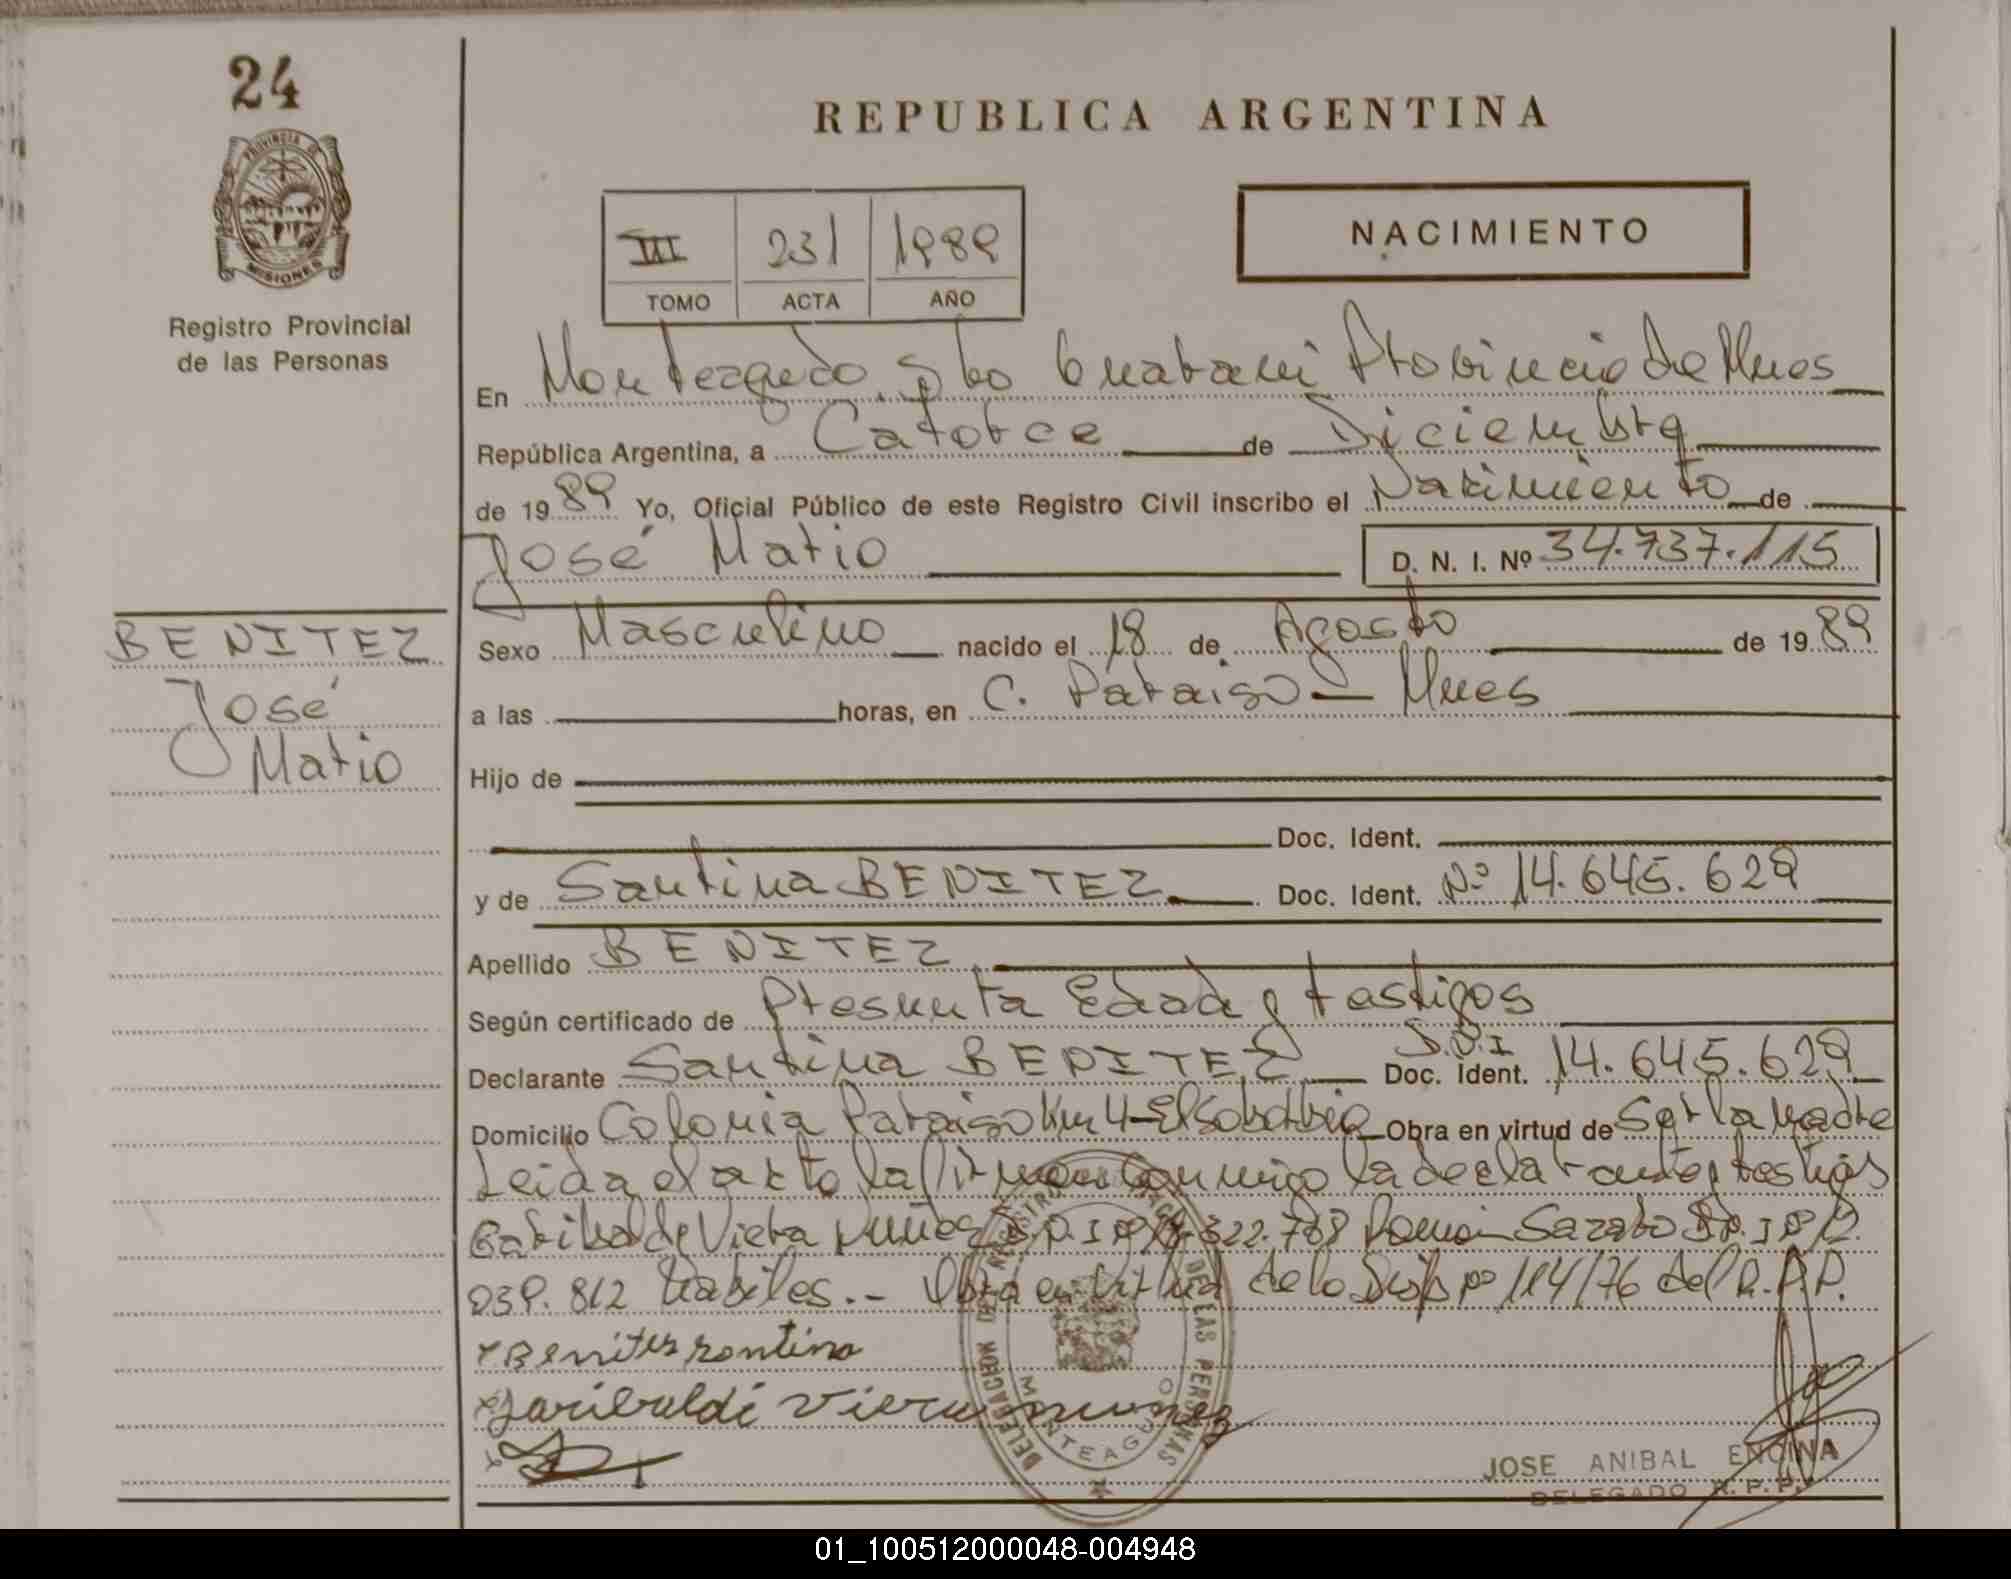 24
PROVINCIA DE
MISIONES
Registro Provincial
de las Personas
BENITEZ
José
Mario
REPUBLICA ARGENTINA
NACIMIENTO
III 231 1989
TOMO ACTA AÑO
En Monteagudo, Dto Guarani Provincia de Mnes
República Argentina, a Catorce de Diciembre
de 1989 Yo, Oficial Público de este Registro Civil inscribo el Nacimiento de
José Mario D. N. I. Nº 34.737.115
Sexo Masculino nacido el 18 de Agosto de 1989
a las horas, en C. Paraiso - Mnes
Hijo de
Doc. Ident.
y de Santina BENITEZ Doc. Ident. Nº 14.645.629
Apellido BENITEZ
Según certificado de Presunta Edad y testigos
Declarante Santina BENITEZ Doc. Ident. D.N.I 14.645.629
Domicilio Colonia Paraiso Km 4-El Soberbio Obra en virtud de Ser la Madre
Leida el acta la firman conmigo la declarante y testigos
Garibaldi Viera Muñez D.N.I Nº 322.788 Roman Sarato D.N.I Nº
039.812 habiles.- Obra en virtud de la Disp Nº 114/76 del R.P.P.
x Benites Santina
x Garibaldi Viera munez
DELEGACION DEL REGISTRO DE LAS PERSONAS
MONTEAGUDO
JOSE ANIBAL ENCINA
DELEGADO R. P. P.
01_100512000048-004948